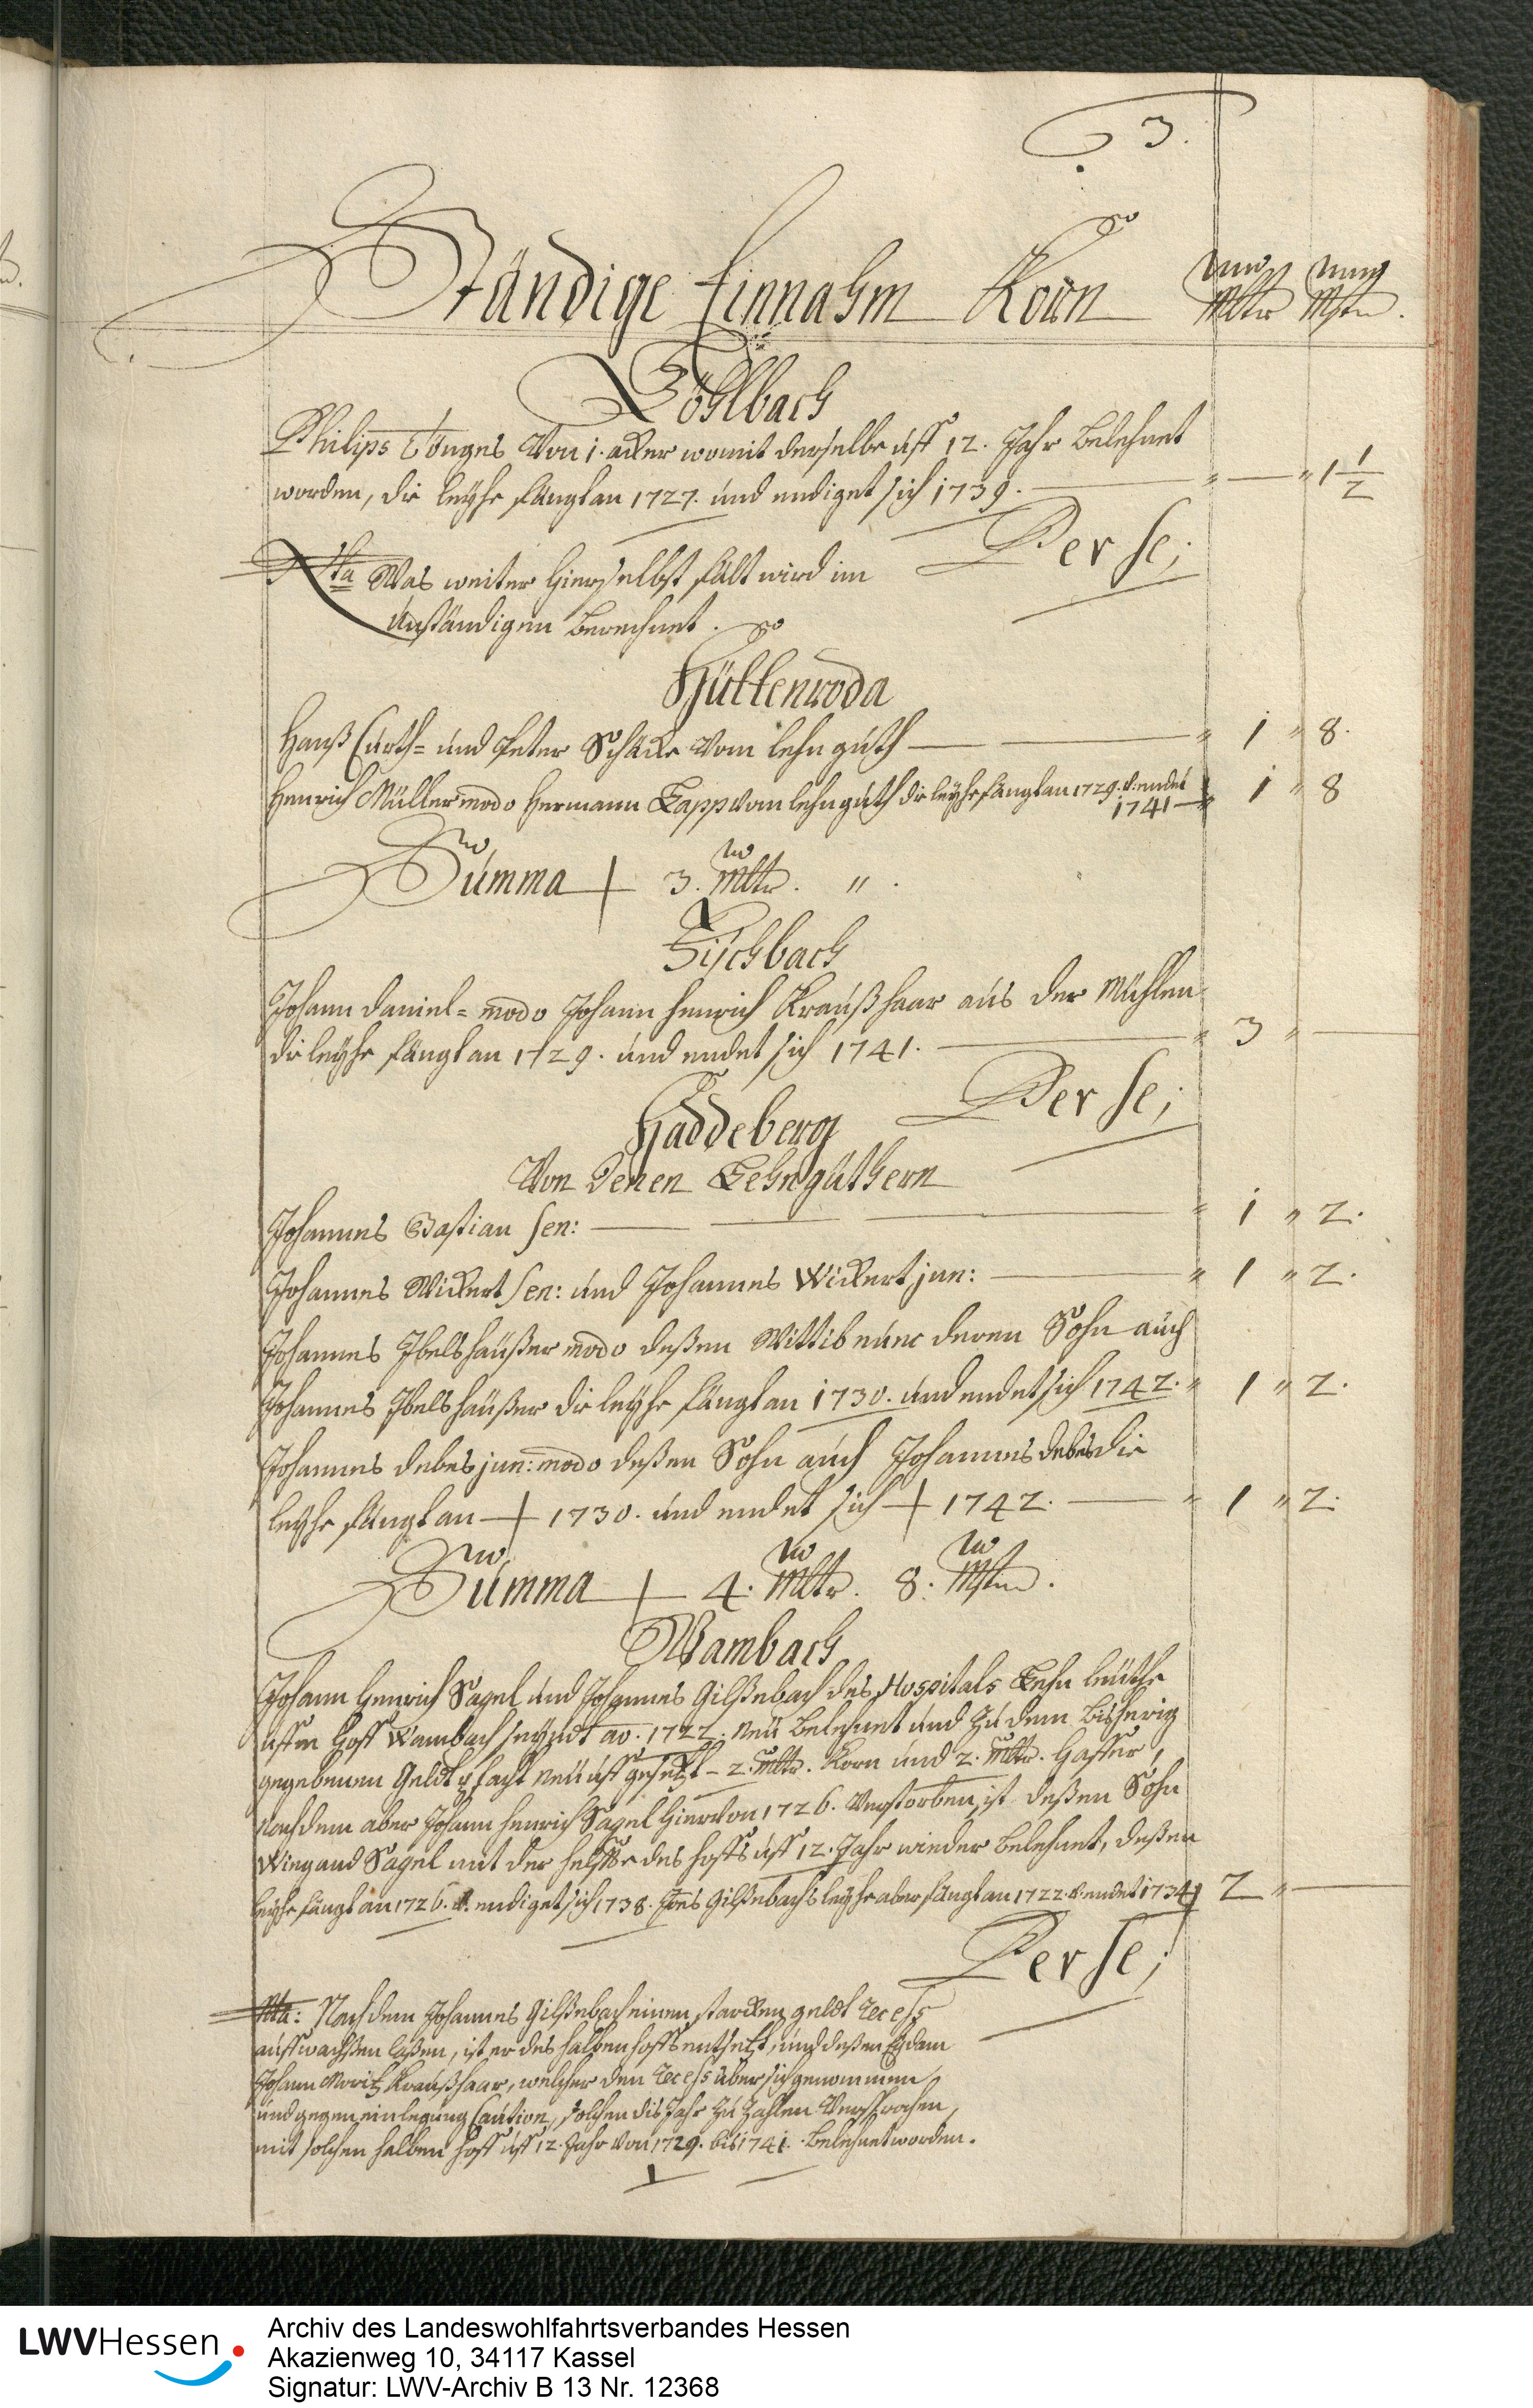 3.
Ständige Einnahm Korn Mltr Mstn.
Löhlbach
Philips Tönges Von 1. acker womit derselbe uff 12. Jahr Belehnet
worden, die leyhe fängt an 1727. und endiget sich 1739. — " — " 1 1/2
Per se;
Nta Was weiter hierselbst fält wird im
Unständigen Berechnet.
Hüttenroda
Hanß Curth= und Peter Schäcke Vom lehn guth — " 1 " 8.
Henrich Müller modo Hermann Lapp vom lehnguth die leyhe fängt an 1729. u. endet
1741 — " 1 " 8
Summa 3. Mltr. " .
Fischbach
Johann Daniel= modo Johann Henrich Kraußhaar aus der Mühlen
die leyhe fängt an 1729. und endet sich 1741. — " 3 " —
Per se;
Haddeberg
Von denen Lehngüthern
Johannes Bastian sen: — " 1 " 2.
Johannes Wickert sen: und Johannes Wickert jun: — " 1 " 2.
Johannes Ibelshäußer modo deßen Wittib nunc deren Sohn auch
Johannes Ibelshäußer die leyhe fängt an 1730. und endet sich 1742. " 1 " 2.
Johannes Debes jun: modo deßen Sohn auch Johannes Debes die
leyhe fängt an 1730. und endet sich 1742. — " 1 " 2.
Summa 4. Mltr. 8. Mstn.
Wambach
Johann Henrich Sagel und Johannes Gilßebach des Hospitals Lehn leuthe
uffm Hoff Wambach seyndt ao. 1722. neu Belehnet und zu dem Bisherig
gegebenen Geldt pfacht neu uff gesetzt – 2. Mltr. Korn und 2. Mltr. Haffer,
Nachdem aber Johann Henrich Sagel hiervon 1726. Verstorben, ist deßen Sohn
Wiegand Sagel mit der helffte des hoffs uff 12. Jahr wieder Belehnet, deßen
leyhe fängt an 1726. u. endiget sich 1738. Joes Gilßebachs leyhe aber fängt an 1722. u. endet 1734 2 " —
Per se;
Nta: Nachdem Johannes Gilßebach einen starcken geldt Recess
auffwachßen laßen, ist er des halben hoffs entsetzt, und deßen Eydam
Johann Moritz Kraußhaar, welcher den Recess über sich genommen
und gegen einlegung Caution, solchen dis Jahr zu zahlen Versprochen,
mit solchen halben hoff uff 12. Jahr von 1729. bis 1741. Belehnet worden.
LWVHessen
Archiv des Landeswohlfahrtsverbandes Hessen
Akazienweg 10, 34117 Kassel
Signatur: LWV-Archiv B 13 Nr. 12368